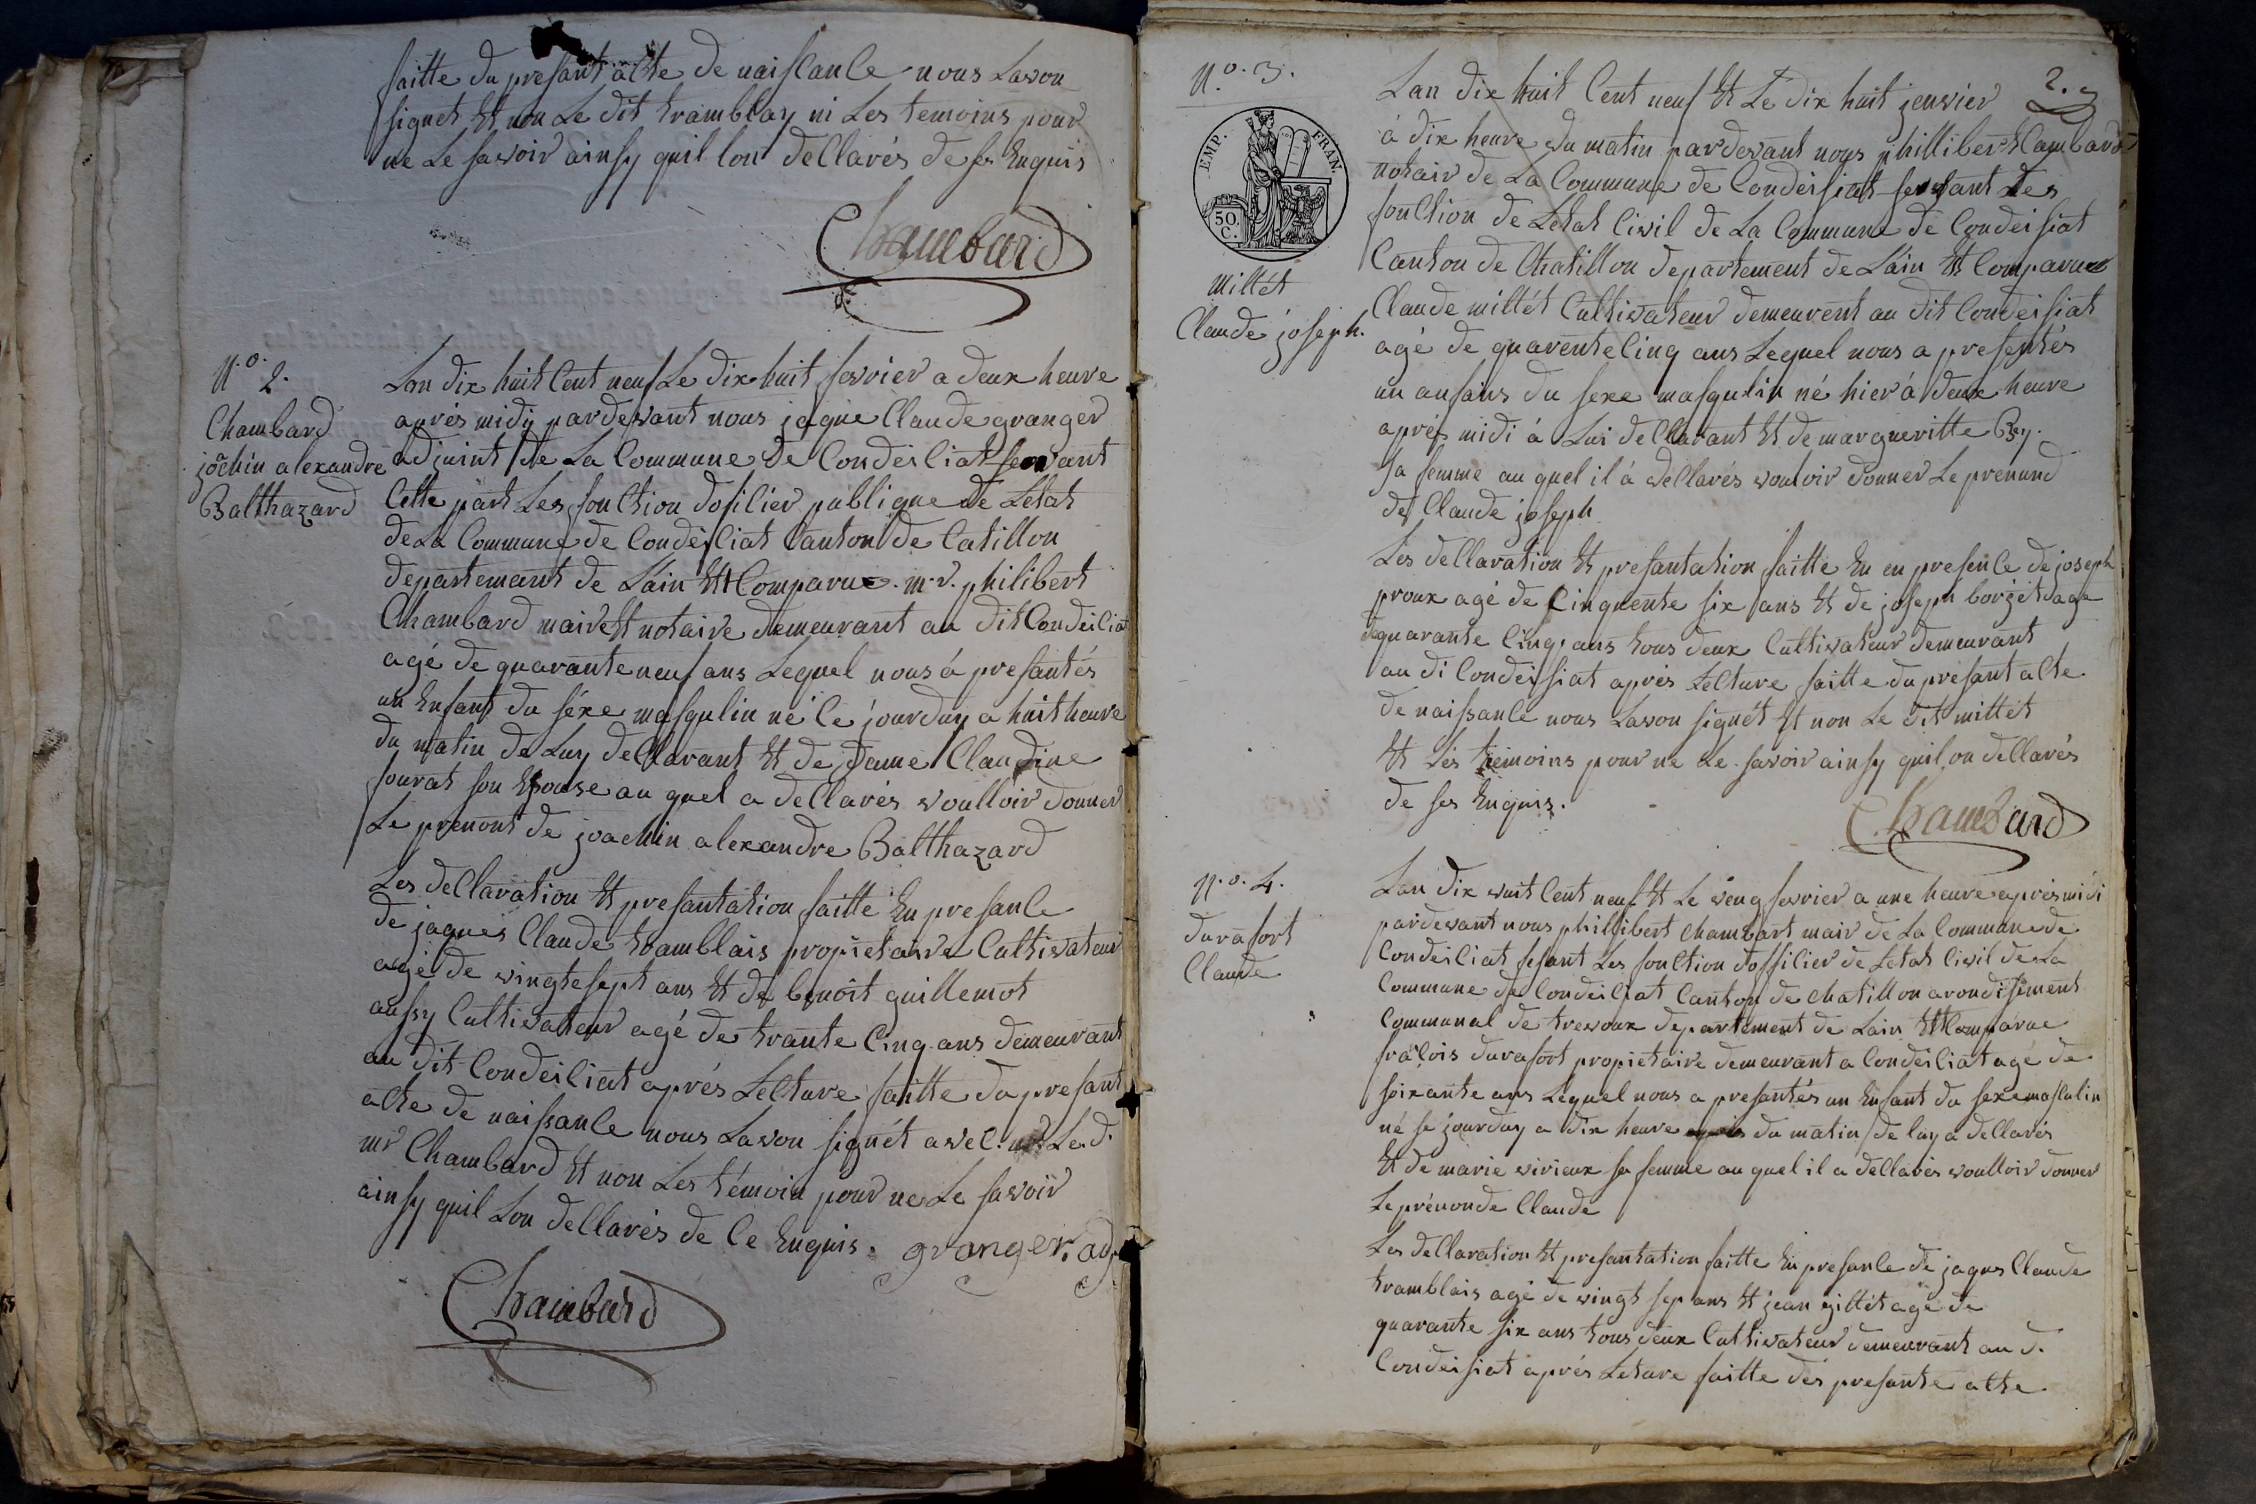 faitte du presant acte de naissance nous Lavon
signet Et non Le dit tramblay ni Les temoins pour
ne Le savoir ainsy quil lon declarés de se Enquis
Chambard
N.o. 2.
Chambard
jochin alexandre
Balthazard
Lan dix huit Cent neuf Le dix huit fevrier a deux heure
aprés midy pardevant nous jaque Claude granger
adjoint de La Commune de Condeiciat fesant
Cette part Les fonction doficier publique de Letat
de La Commune de Condeiciat Canton de Catillon
departemant de Lain Et Comparue m.r. philibert
Chambard maire Et notaire demeurant au dit Condeiciat
agé de quarante neuf ans Lequel nous á presantés
un Enfant du séxe masqulin né ce jourduy a huit heure
du matin de Luy declarant Et de Dame Claudine
fourat son Epouse au quel a declarés voulloir donner
Le prenont de joachin alexandre Balthazard
Les declaration Et presantation faitte En presance
de jaques Claude tramblais propietaire Cultivateur
agé de vingtesept ans Et de benoit guillemot
aussy Cultivateur agé de trante Cinq ans demeurant
au dit Condeiciat aprés Lecture faitte du presant
acte de naissance nous Lavon signét avec Le d.
mr Chambard Et non Les témoin pour ne Le savoir
ainsy quil Lon declarés de Ce Enquis. granger. adj
Chambard
N.o. 3.
2.
EMP. FRAN.
50 C.
Millét
Claude joseph.
Lan dix huit Cent neuf Et Le dix huit jenvier
á dix heure du matin pardevant nous philliber Chambard
notair de La Commune de Condeisiat fesant Les
fonction de Letat Civil de La Commune de Condeisiat
Canton de Chatillon departement de Lain Et Comparue
Claude millét Cultivateur demeurent au dit Condeisiat
agé de quarente Cinq ans Lequel nous a presentés
un anfans du sexe masqulin né hier á deux heure
aprés midi á Lui declarant Et de margueritte Bey.
sa femme au quel il á declarés vouloir donner Le prenund
de Claude joseph
Les declaration Et presantation faitte En en presence de joseph
proux agé de Cinquente six ans Et de joseph borgét dage
de quarante Cinq ans tous deux Cultivateur demeurant
au di Condeisiat aprés Lecture faitte du presant acte
de naissance nous Lavon signét Et non Le dit millét
Et Les temoins pour ne Le savoir ainsy quil on declarés
de ses Enquis.
Chambard
N.o. 4.
durafort
Claude
Lan dix huit Cent neuf Et Le veng fevrier a une heure aprés midi
pardevant nous phillibert Chambart mair de La Commune de
Condeiciat fesant Les fonction dofficier de Letat Civil de La
Commune de Condeiciat Canton de Chatillon arondisiment
Communal de trevoux departement de Lain Et Comparue
fracois durafort propietaire demeurant a Condeiciat agé de
soixante ans Lequel nous a presantés un Enfant du sexe masculin
né se jourduy a dix heure du matin de luy a declarés
Et de marie virieux sa femme au quel il a declarés voulloir donner
Le prénon de Claude
Les declaration Et presantation faitte En presance de jaques Claude
tramblais agé de vingt sep ans Et jean gillét agé de
quarante six ans tous deux Cultivateur demeurant au d.
Condeisiat aprés Letare faitte des presante acte